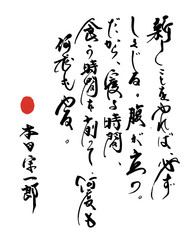 新しことをやれば、必ず
しくじる。腹が立つ。
だから、寝る時間、
食う時間を削って、何度も
何度もやる。
本田宗一郎